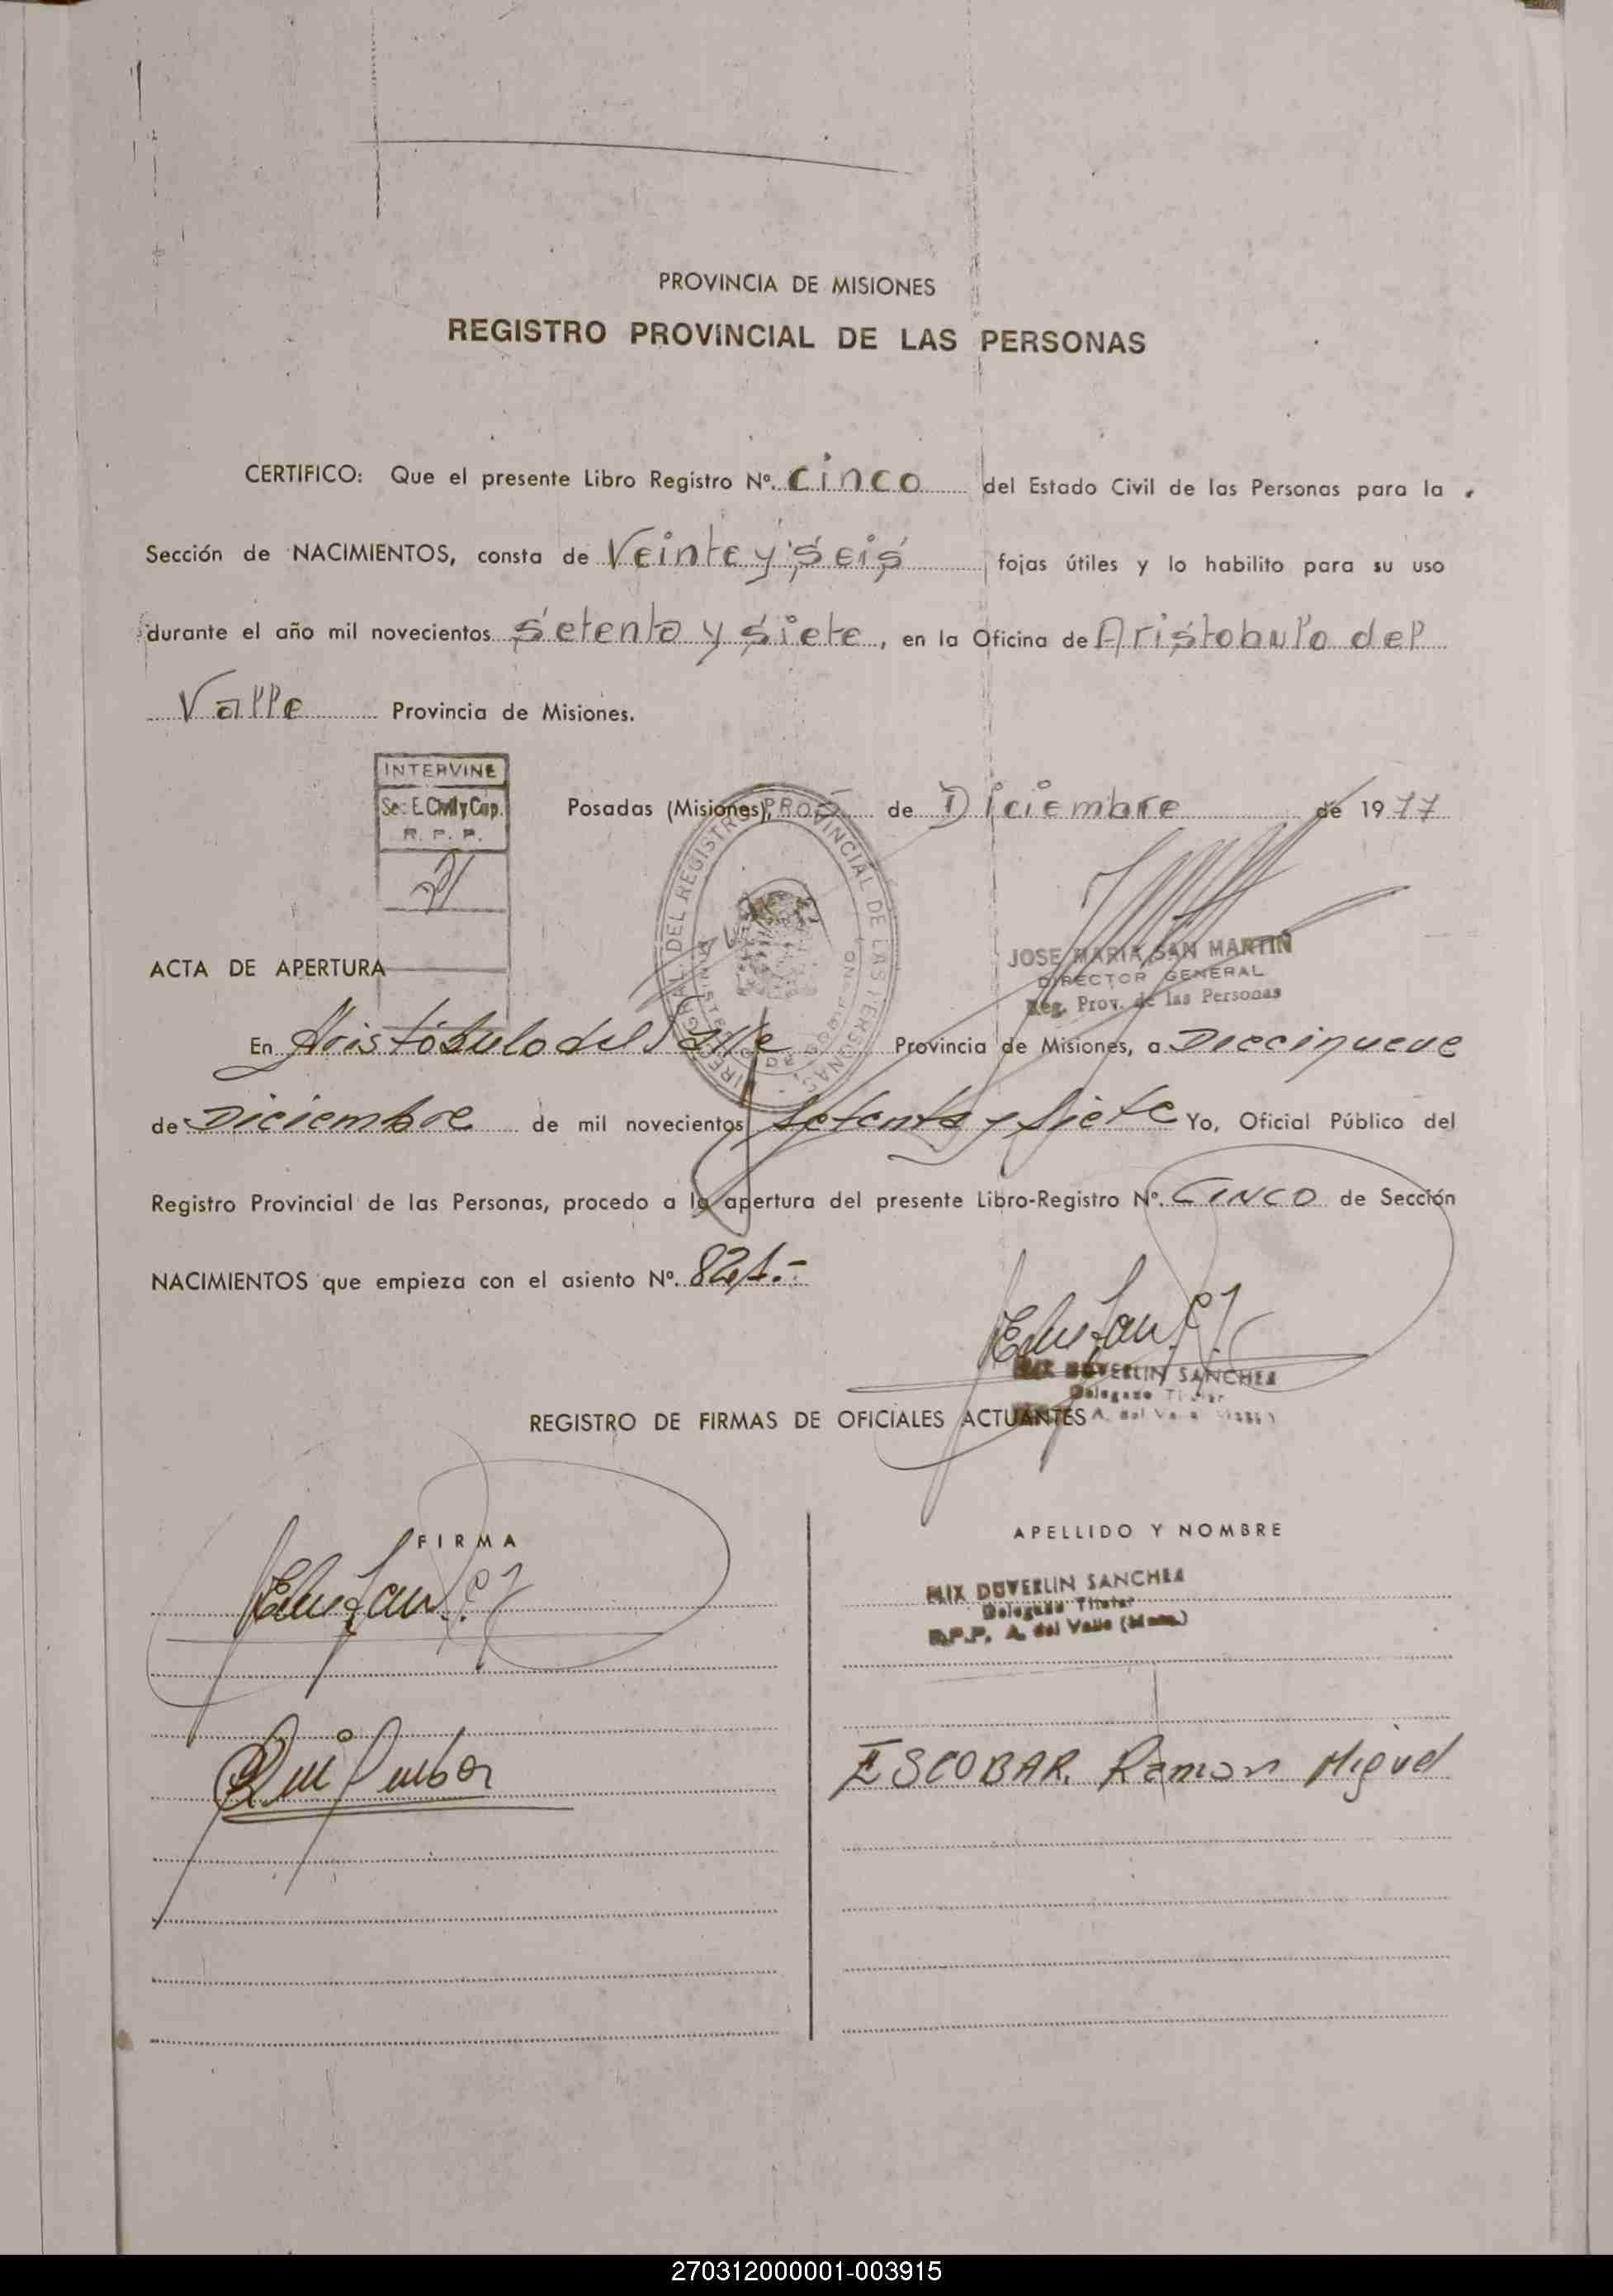 PROVINCIA DE MISIONES
REGISTRO PROVINCIAL DE LAS PERSONAS
CERTIFICO: Que el presente Libro Registro Nº. cinco del Estado Civil de las Personas para la
Sección de NACIMIENTOS, consta de Veinte y seis fojas útiles y lo habilito para su uso
durante el año mil novecientos setenta y siete, en la Oficina de Aristobulo del
Valle Provincia de Misiones.
INTERVINE
Sec. E. Civil y Cap.
R. P. P.
Posadas (Misiones), de Diciembre de 1977
DIRECCION GRAL. DEL REGISTRO PROVINCIAL DE LAS PERSONAS
JOSE MARIA SAN MARTIN
DIRECTOR GENERAL
Reg. Prov. de las Personas
ACTA DE APERTURA
En Aristóbulo del Valle Provincia de Misiones, a Diecinueve
de Diciembre de mil novecientos Setenta y Siete Yo, Oficial Público del
Registro Provincial de las Personas, procedo a la apertura del presente Libro-Registro Nº. CINCO de Sección
NACIMIENTOS que empieza con el asiento Nº. 821.-
DUVERLIN SANCHEZ
Delegado Titular
A. del Valle
REGISTRO DE FIRMAS DE OFICIALES ACTUANTES
FIRMA
APELLIDO Y NOMBRE
MIX DUVERLIN SANCHEZ
Delegado Titular
R.P.P. A. del Valle (Mnes.)
ESCOBAR, Ramon Miguel
270312000001-003915